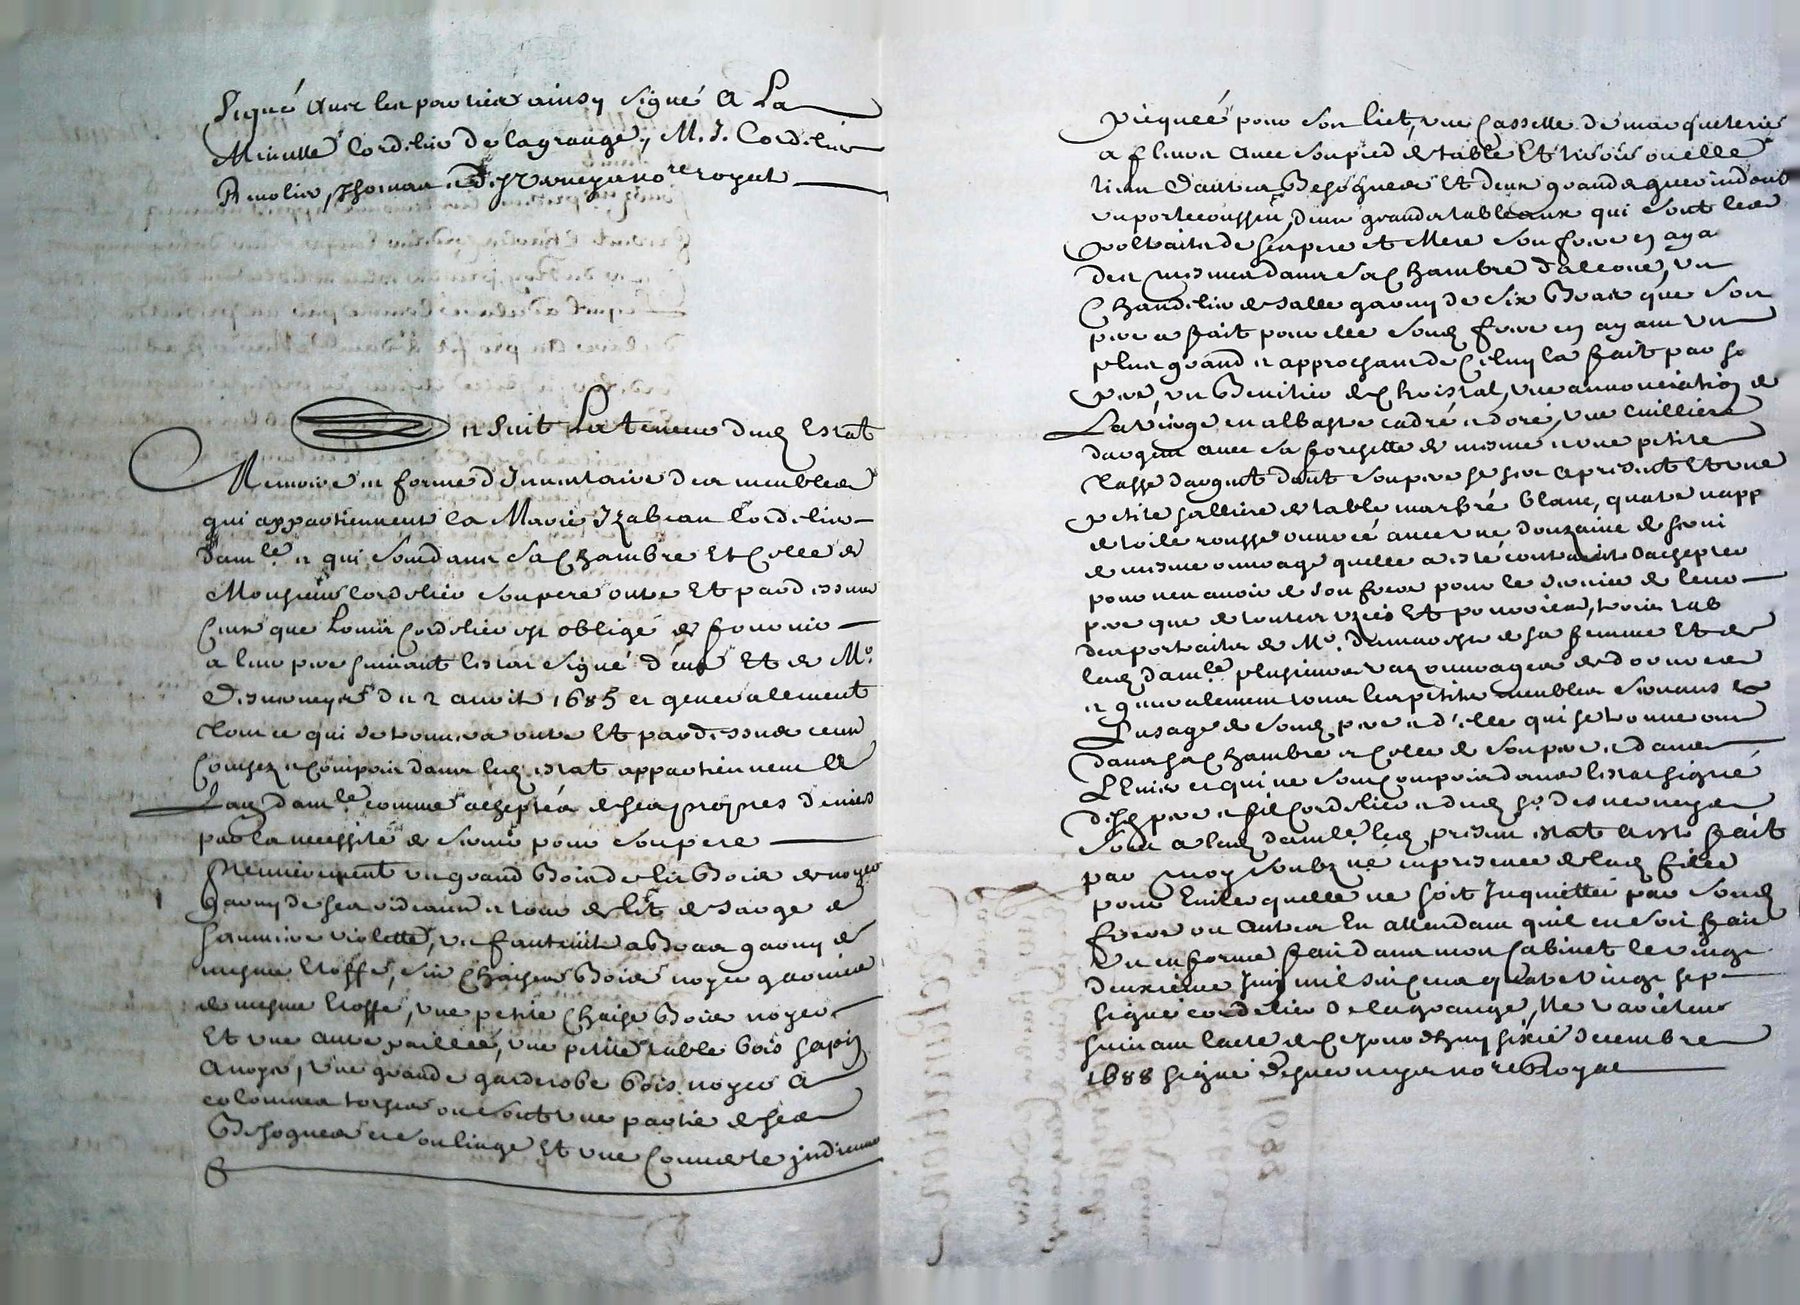 signé avec les parties ainsy signé A La
Minutte Cordelier de lagrange, M. J. Cordelier
Thomas notre royal
ensuit La teneur dud Estat
Memoire en forme d'Inventaire des meubles
qui appartiennent a Marie Izabeau Cordelier
damle et qui sont dans sa Chambre Et Celle de
Monsieur Cordelier son pere outre Et pardessus
Ceux que Louis Cordelier est obligé de fournir
a leur pere suivant lestat signé d'eux Et de Mr
Desverneys du 2 aoust 1685 et generalement
tout ce qui se trouvera outre Et pardessus ceux
Couchez et Compris dans led estat appartiennent A
Lad damle comme acheptés de ses propres deniers
par la necessité de servir pour son pere
Premierement un grand Bois de lit Bois de noyer
garny de ses rideaux et tour de lit de sarge de
couleur violette, un fauteuil a Bras garny de
mesme Etoffe, six Chaises Bois noyer garnies
de mesme Etoffe, une petite Chaise Bois noyer
Et une autre paillée, une petite table bois sapin
A noyer, une grande garderobe bois noyer a
colomnes torses ou sont une partie de ses
Besognes et son linge Et une Couverte indienne
picquée pour son lict, une Cassette de marqueterie
a fleurs avec son pied de table Et tiroirs ou elle
tient d'autres Besognes Et deux grands gueridons
un porte coussin, deux grands tableaux qui sont les
portraits de ses pere et Mere son frere en aya
des mesmes dans sa Chambre d'alcove, un
Chandelier de salle garny de six Bras que son
pere a fait pour elle sond frere en ayant un
plus grand et approchant de Celuy la fait par so
pere, un Benitier de Christal, une annonciation de
La vierge en albastre cadré et doré, une cuilliere
dargent avec sa forchette de mesme et une petite
tasse dargent dont son pere se sert a present Et une
petite salliere de table marbre blanc, quatre napp
de toile rousse ouvrée avec une douzaine de servi
de mesme ouvrage quelle a esté contrainte dachepter
pour nen avoir de son frere pour le service de leur
pere que de toutes usées Et pourries, trois tab
des portraits de Mr. de sa femme Et de
lad damle plusieurs vaz ouvrages de dorures
et generalement tous les petits meubles servants a
Lusage de sond pere et d'elle qui se trouveront
dans sa Chambre et Celle de son pere et dans
et qui ne sont Compris dans lestat signé
desd pere et fils Cordelier et dud sr desverneys
sont a lad damle led present estat a esté fait
par moy soubzné en presence de lad fille
pour Eviter quelle ne soit Inquiettée par sond
frere ou autres En attendant quil en soit fait
un en forme fait dans mon Cabinet le vingt
deuxieme Juin mil six cens quatre vingt sept
signé cordelier de lagrange, Ne varietur
suivant lacte de Cejourdhuy sixie decembre
1688 signé desverneys notre Royal